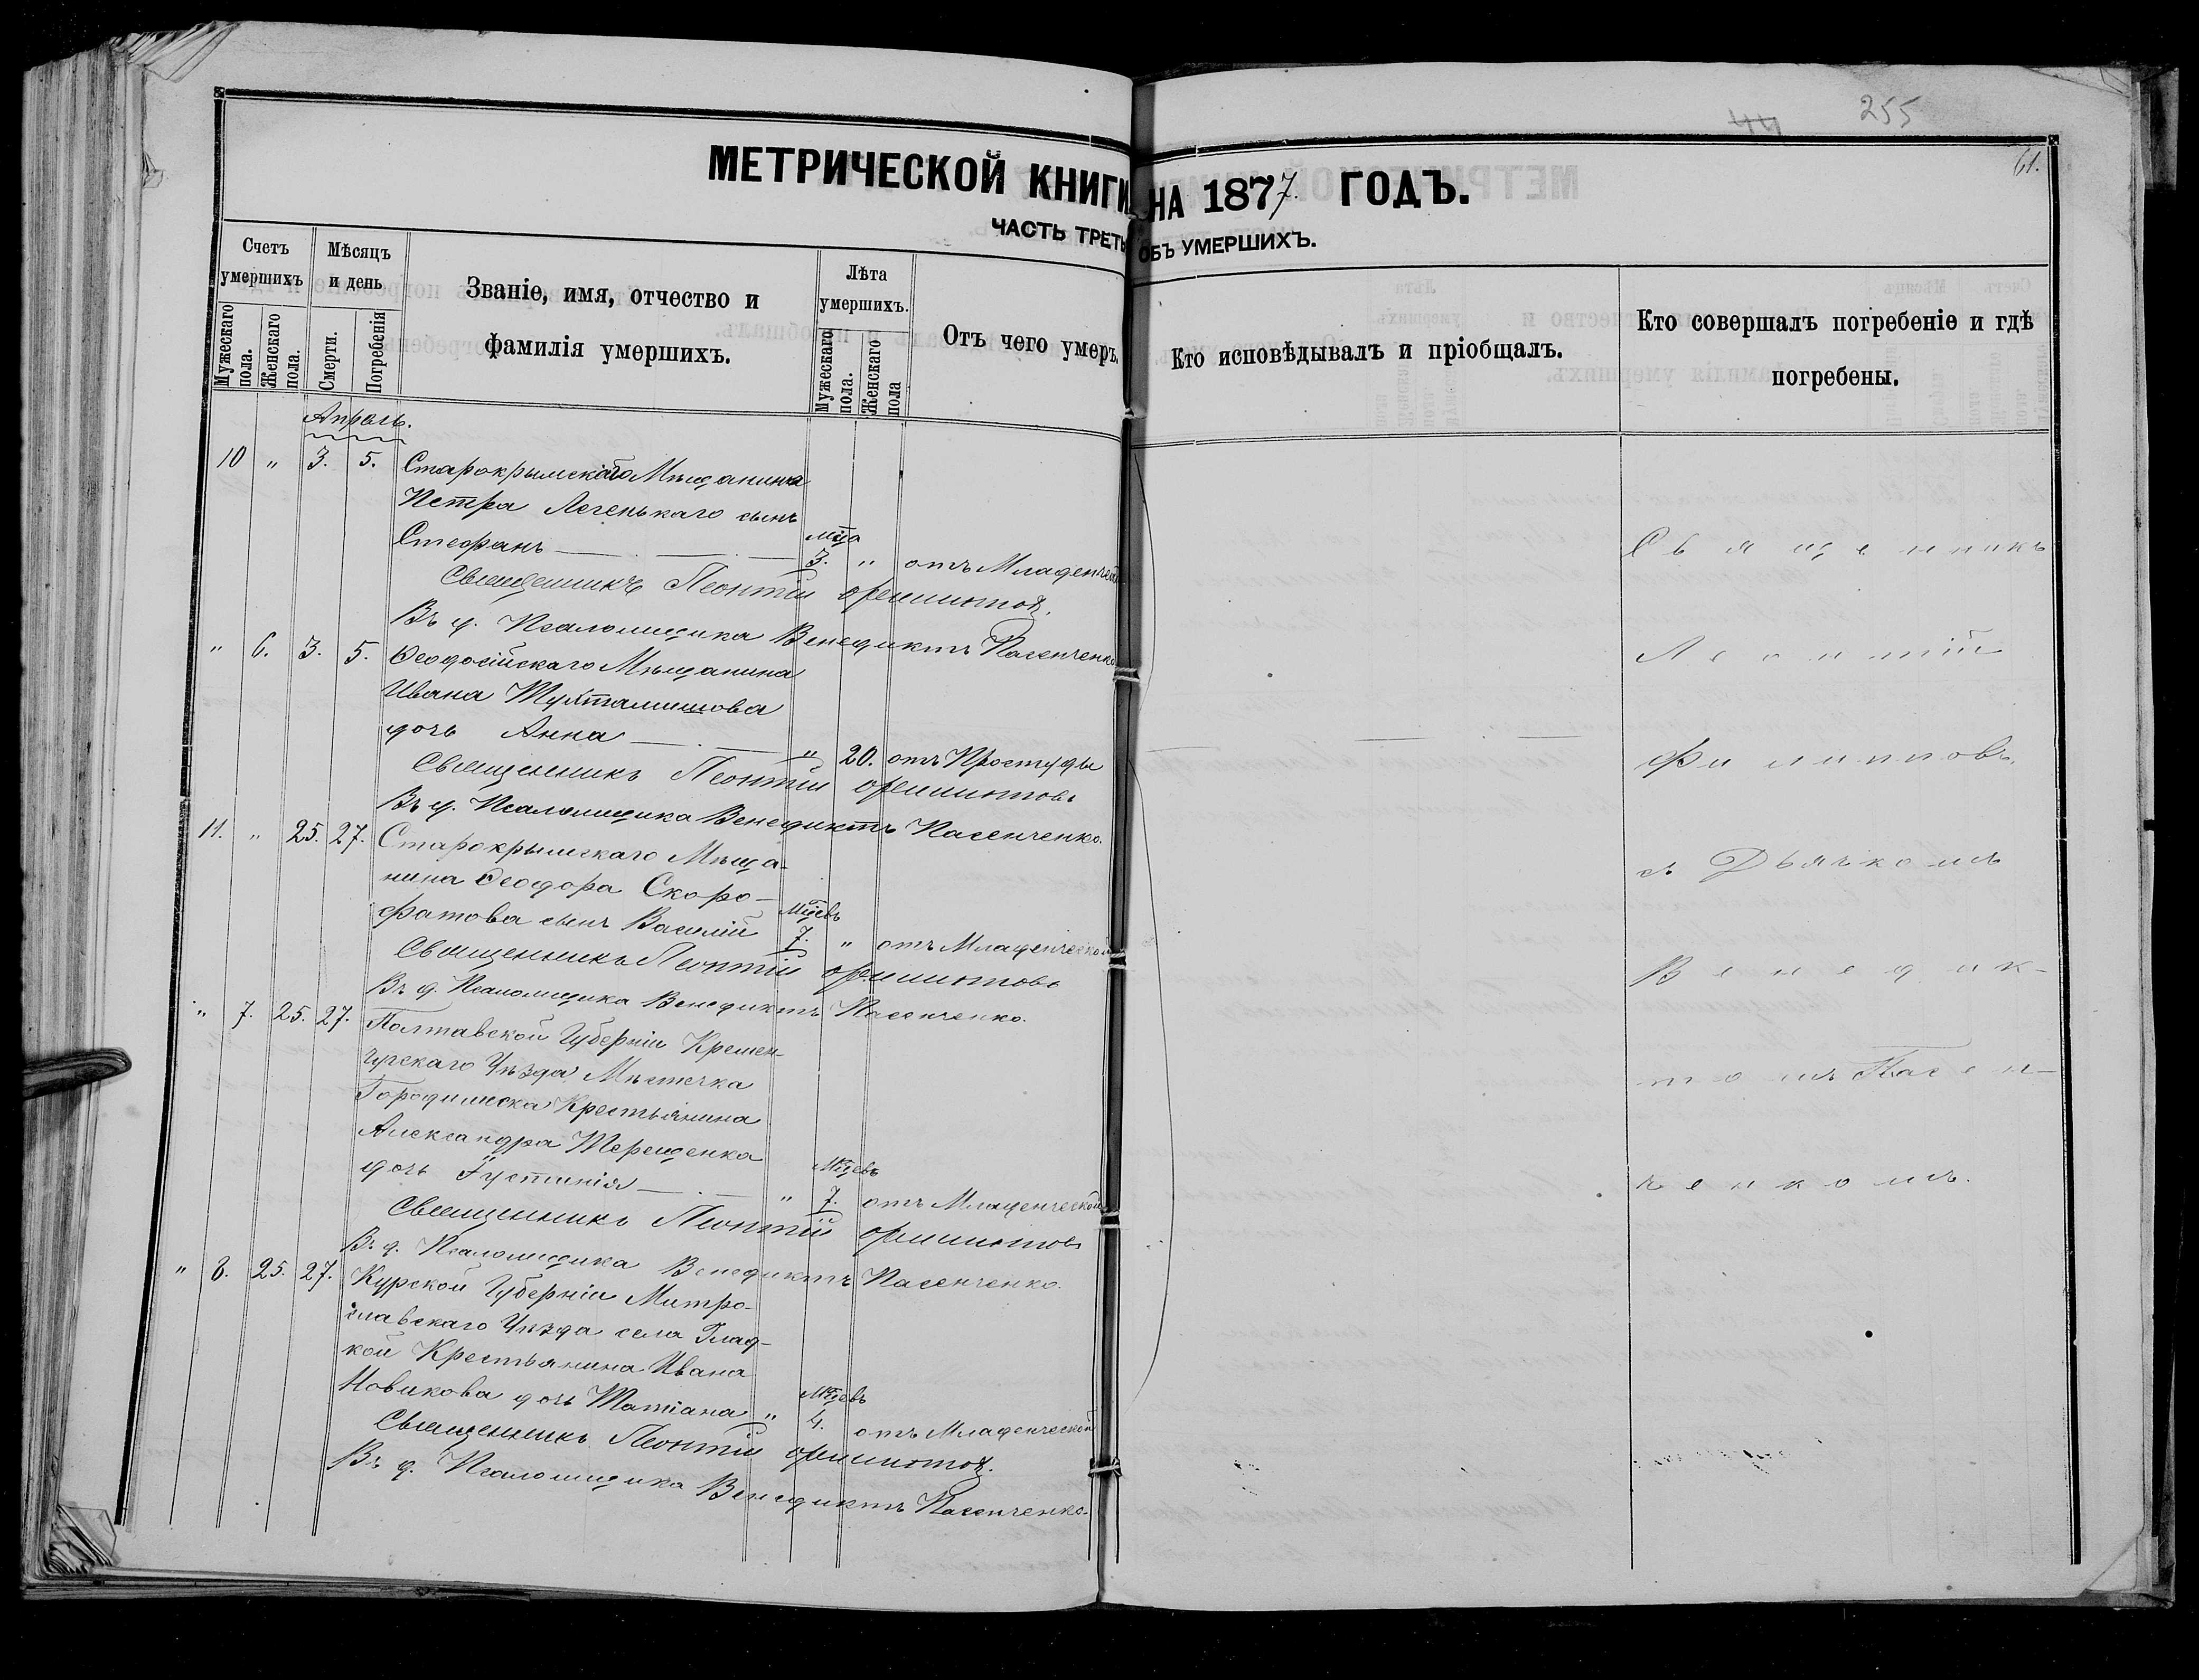 255
44
61.
МЕТРИЧЕСКОЙ КНИГИ НА 1877. ГОДЪ.
ЧАСТЬ ТРЕТЬ ОБЪ УМЕРШИХЪ.
Счетъ умершихъ
Мужескаго пола.
Женскаго пола.
Мѣсяцъ и день
Смерти.
Погребенія
Званіе, имя, отчество и
фамилія умершихъ.
Лѣта умершихъ.
Мужескаго пола.
Женскаго пола
Отъ чего умеръ.
Кто исповѣдывалъ и пріобщалъ.
Кто совершалъ погребеніе и гдѣ
погребены.
Апрѣль.
10 " 3. 5. Старокрымскаго Мѣщанина
Петра Легенькаго сынъ
Стефанъ — . — . — Мца 3. " отъ Младенческ
Священникъ Леонтій Филипповъ.
Въ д. Псаломщика Венедиктъ Пасенченко
" 6. 3. 5. Ѳеодосійскаго Мѣщанина
Ивана
дочь Анна — . — " 20. отъ Простуды
Священникъ Леонтій Филипповъ
Въ д. Псаломщика Венедиктъ Пасенченко.
11. " 25. 27. Старокрымскаго Мѣща-
нина Ѳеодора Скоро-
фатова сынъ Василій Мцевъ 7. " отъ Младенческой
Священникъ Леонтій Филипповъ
Въ д. Псаломщика Венедиктъ Пасенченко.
" 7. 25. 27. Полтавской Губерніи Кремен-
чугскаго Уѣзда Мѣстечка
Городишска Крестьянина
Александра Терещенка
дочь Іустинія — . — " Мцевъ 7. отъ Младенческой
Священникъ Леонтій Филипповъ
Въ д. Псаломщика Венедиктъ Пасенченко.
" 8. 25. 27. Курской Губерніи Митро-
славскаго Уѣзда села Глад-
кой Крестьянина Ивана
Новикова дочь Татіана " Мцевъ 4. отъ Младенческой
Священникъ Леонтій Филипповъ.
Въ д. Псаломщика Венедиктъ Пасенченко.
Священникъ
Леонтій
Филипповъ,
съ Дьячкомъ
Венедик-
томъ Пасен-
ченкомъ.